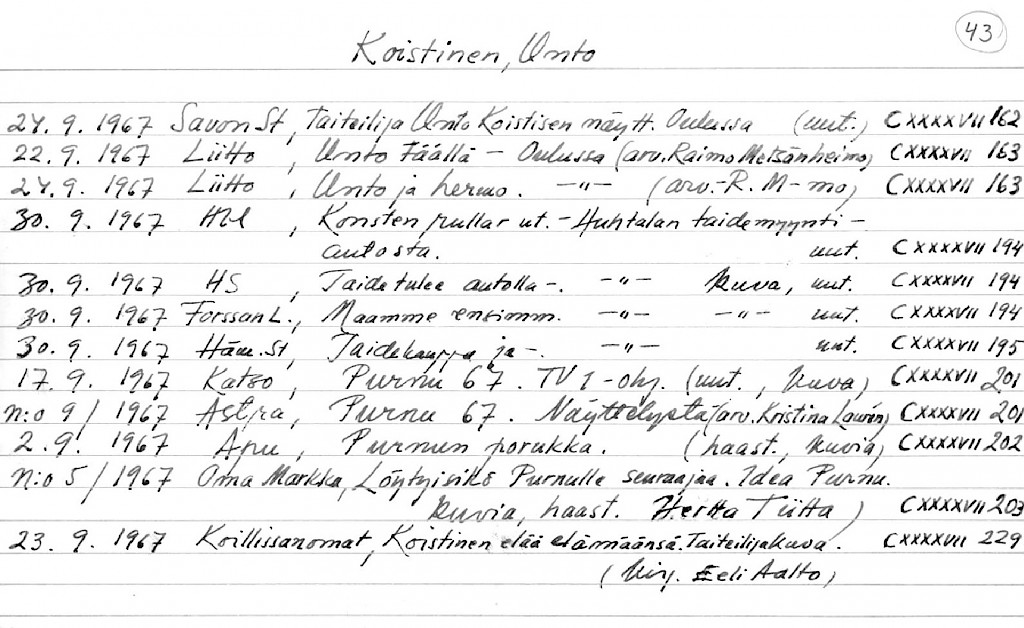 43
Koistinen, Unto
24. 9. 1967 Savon St, Taiteilija Unto Koistisen näytt. Oulussa (uut.) CXXXXVII 162
22. 9. 1967 Liitto, Unto täällä - Oulussa (arv. Raimo Metsänheimo) CXXXXVII 163
24. 9. 1967 Liitto, Unto ja hermo. -"- (arv.- R. M-mo) CXXXXVII 163
30. 9. 1967 Hbl, Konsten rullar ut. - Huhtalan taidemyynti-
autosta. uut. CXXXXVII 194
30. 9. 1967 HS, Taide tulee autolla -. -"- kuva, uut. CXXXXVII 194
30. 9. 1967 Forssan L., Maamme ensimm. -"- -"- uut. CXXXXVII 194
30. 9. 1967 Häm. St, Taidekauppa ja -. -"- uut. CXXXXVII 195
17. 9. 1967 Katso, Purnu 67. TV 1-ohj. (uut., kuva) CXXXXVII 201
n:o 9 / 1967 Astra, Purnu 67. Näyttelystä (arv. Kristina Laurén) CXXXXVII 201
2. 9. 1967 Apu, Purnun porukka. (haast., kuvia) CXXXXVII 202
n:o 5 / 1967 Oma Markka, Löytyisikö Purnulle seuraajaa. Idea Purnu.
kuvia, haast. Hertta Tiitta) CXXXXVII 203
23. 9. 1967 Koillissanomat, Koistinen elää elämäänsä. Taiteilijakuva. CXXXXVII 229
(kirj. Eeli Aalto)